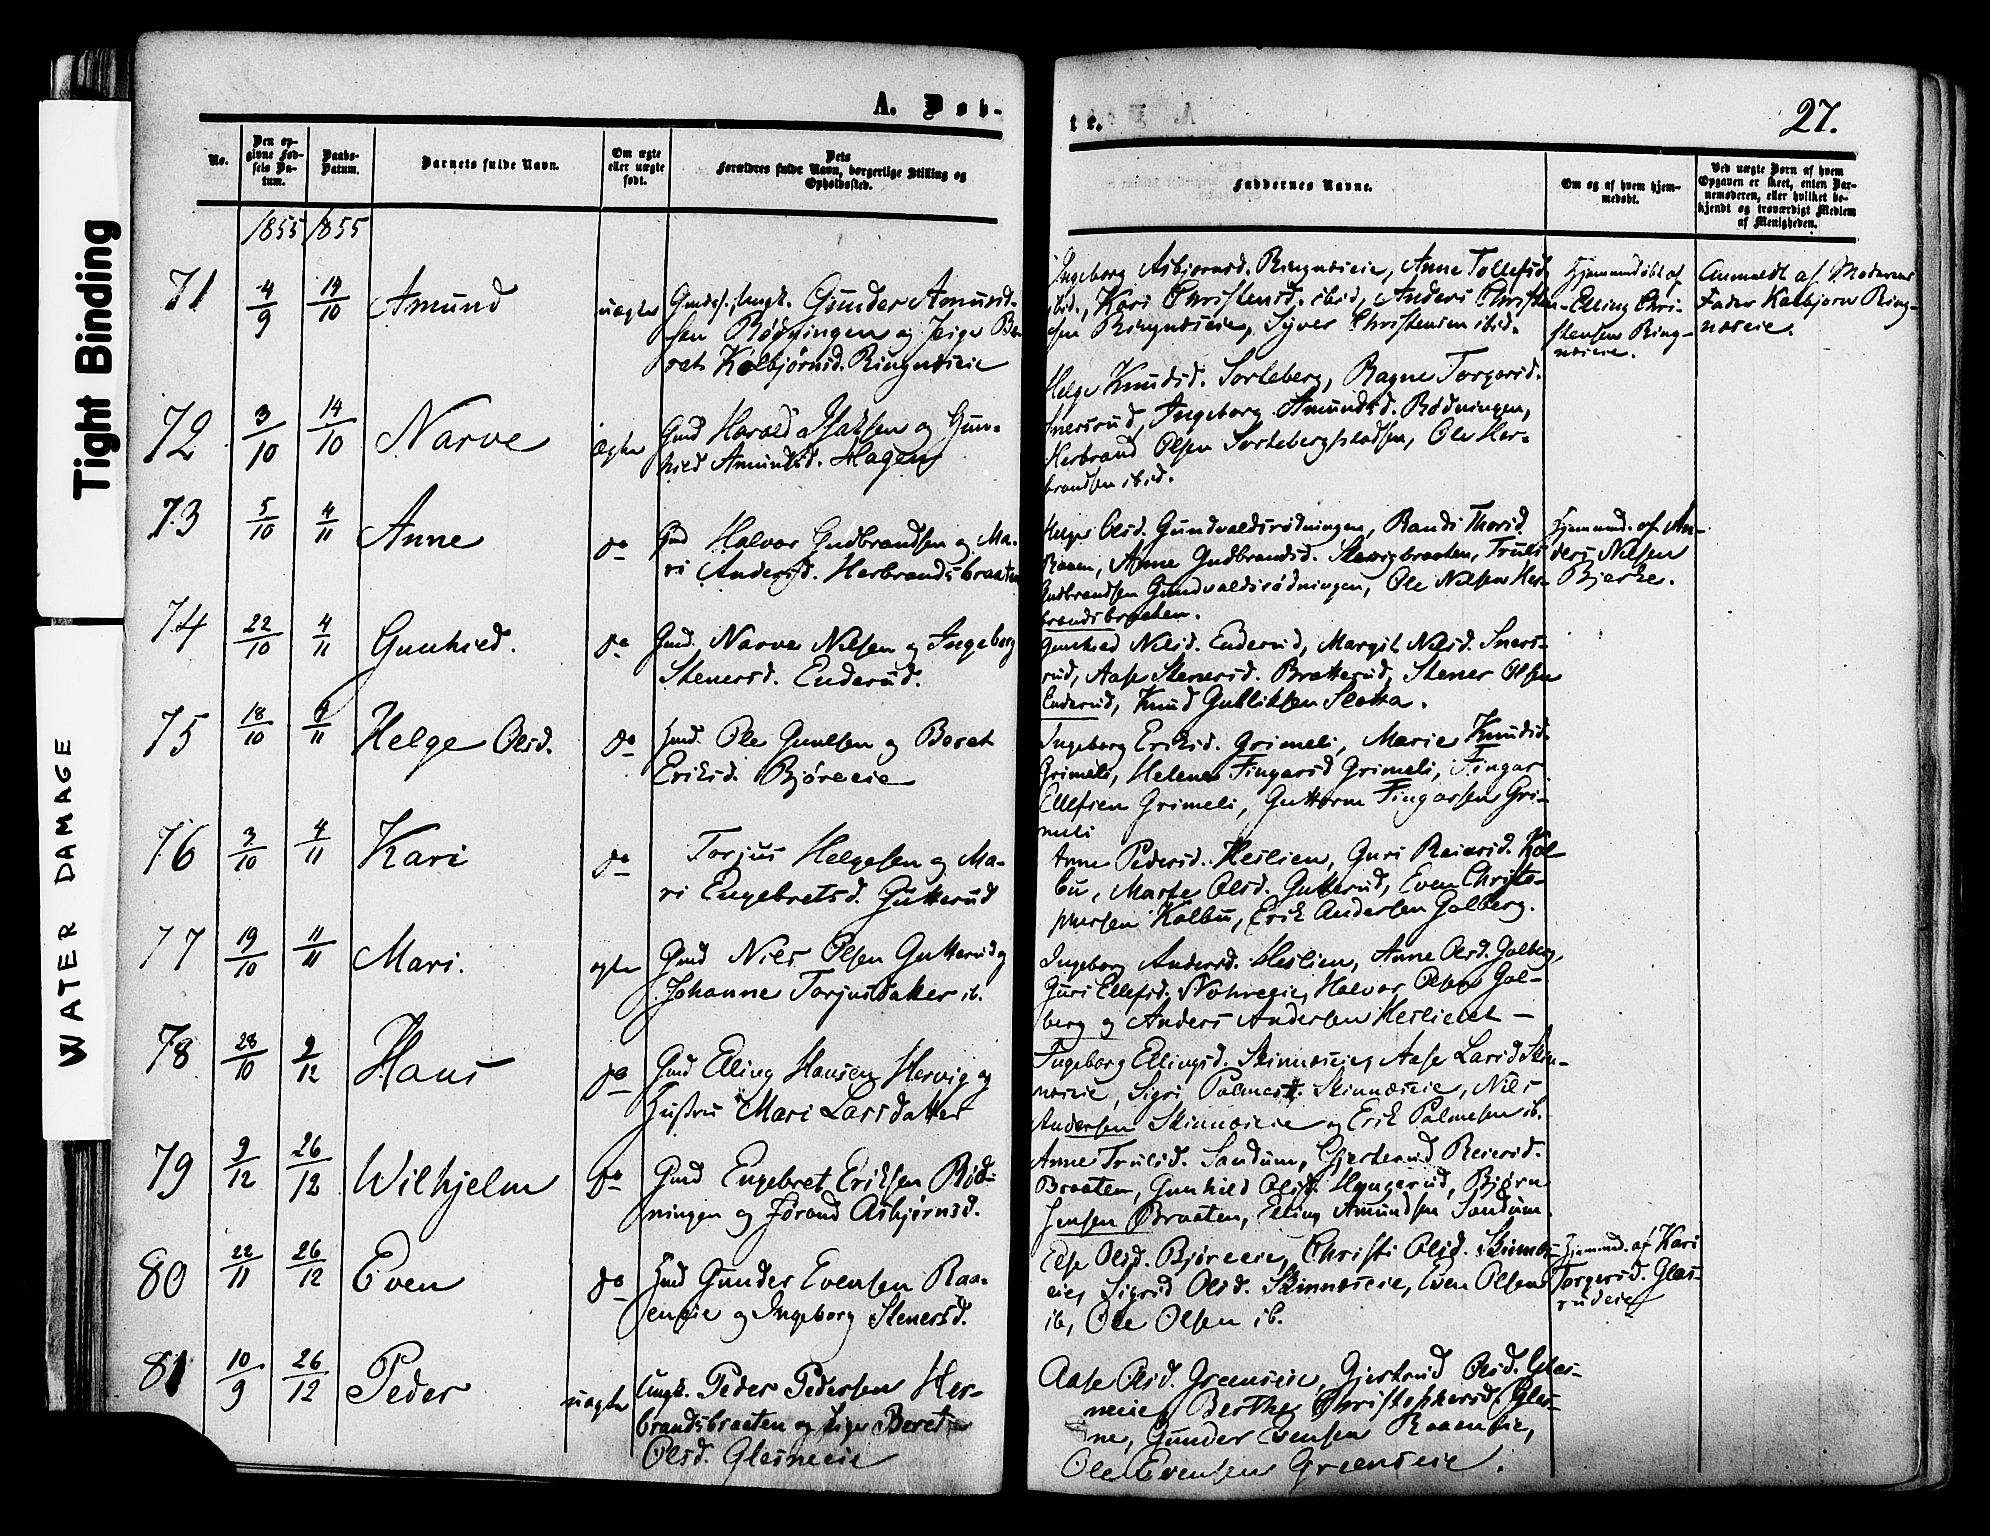 Tight Binding
WATER DAMAGE
A. Døb-
te.
27.
No.
Den op-
givne Fød-
sels Da-
tum.
Daabs-
Datum.
Barnets fulde Navn.
Om ægte
eller uægte
født.
Dets
Forældres fulde Navn, borgerlige Stilling og
Opholdssted.
Faddernes Navne.
Om og af hvem hjem-
medøbt.
Ved uægte Børn af hvem
Opgaven er skeet, enten Bar-
nemoderen, eller hvilket be-
kjendt og troværdigt Medlem
af Menigheden.
1855 1855
71 4/9 14/10 Amund uægte
Gunder Amund-
sen Rødningen og Pige Be-
ret Kolbjørnsd. Ringnæseie
Ingeborg Asbjørnsd. Ringnæseie, Anne Tollefsd.
ibid., Kari Christensd. ibid, Anders Christen-
sen Ringnæseie, Syver Christensen ibid.
Hjemmedøbt af
Elling Chri-
stensen Ring-
næseie.
Anmeldt af Moderens
Fader Kolbjørn Ring-
næseie.
72 3/10 14/10 Narve ægte
Gmd Harald Isaksen og Gun-
hild Amundsd. Hagen
Helge Knudsd. Sorteberg, Ragne Torgersd.
Snersrud, Ingeborg Amundsd. Rødningen,
Herbrand Olsen Sortebergpladsen, Ole Her-
brandsen ibid.
73 5/10 4/11 Anne do
Gmd Halvor Gudbrandsen og Ma-
ri Andersd. Herbrandsbraaten
Helge Olsd. Gundvaldsrødningen, Randi Thorsd.
Raaen, Anne Gudbrandsd. Skarrgbraaten, Truls
Gudbrandsen Gundvaldsrødningen, Ole Nilsen Her-
brandsbraaten.
Hjemmed. af An-
ders Nilsen
Bjerke.
74 22/10 4/11 Gunhild. do
Gmd. Narve Nilsen og Ingeborg
Stenersd. Enderud.
Gunhild Nilsd. Enderud, Margit Nilsd. Sners-
rud, Aase Stenersd. Bratterud, Stener Olsen
Enderud, Knud Gulliksen Sletta.
75 18/10 4/11 Helge Olsd. do
Hmd. Ole Gunlsen og Beret
Eriksd. Bjøreeie
Ingeborg Eriksd. Grimeli, Marie Knudsd.
Grimeli, Helene Fingarsd Grimeli, Fingar
Ellefsen Grimeli, Guttorm Fingarsen Gri-
meli
76 3/10 4/11 Kari do
Torjus Helgesen og Ma-
ri Engebretsd. Gutterud
Anne Pedersd. Heslien, Guri Reiersd. Kol-
bu, Marte Olsd. Gutterud, Even Christo-
phersen Kolbu, Erik Andersen Golberg.
77 19/10 11/11 Mari. ægte
Gmd Nils Olsen Gutterud og
Johanne Torjusdatter ib.
Ingeborg Andersd. Heslien, Anne Olsd. Golberg,
Guri Ellefsd. Nohreeie, Halvor Olsen Gol-
berg og Anders Andersen Heslieiet –
78 28/10 2/12 Hans do
Gmd Elling Hansen Hervig og
Hustru Mari Larsdatter
Ingeborg Ellingsd. Skinnæseie, Aase Larsd Skin-
næseie, Sigri Palmesd. Skinnæseie, Nils
Andersen Skinnæseie og Erik Palmesen ib.
79 9/12 26/12 Wilhjelm do
Gmd Engebret Eriksen Rød-
ningen og Jørand Asbjørnsd.
Anne Trulsd. Sandum, Gjertrud Reiersd.
Braaten, Gunhild Olsd. Haugerud, Bjørn
Jensen Braaten, Elling Amundsen Sandum.
80 22/11 26/12 Even do
Hmd Gunder Evensen Raa-
eneie og Ingeborg Stenersd.
Else Olsd. Bjøreeie, Christi Olsd. Skinnæs-
eie, Sigrid Olsd. Skinnæseie, Even Olsen
ib, Ole Olsen ib.
Hjemmed. af Kari
Torgersd. Glas-
rudeie
81 10/9 26/12 Peder uægte
Ungk. Peder Pedersen Her-
brandsbraaten og Pige Beret
Olsd. Glesneeie
Aase Olsd. Grænseie, Gjertrud Olsd. Gles-
neeie, Berthe Christophersd. Gles-
ne, Gunder Evensen Raaeneie,
Ole Evensen Grænseie.